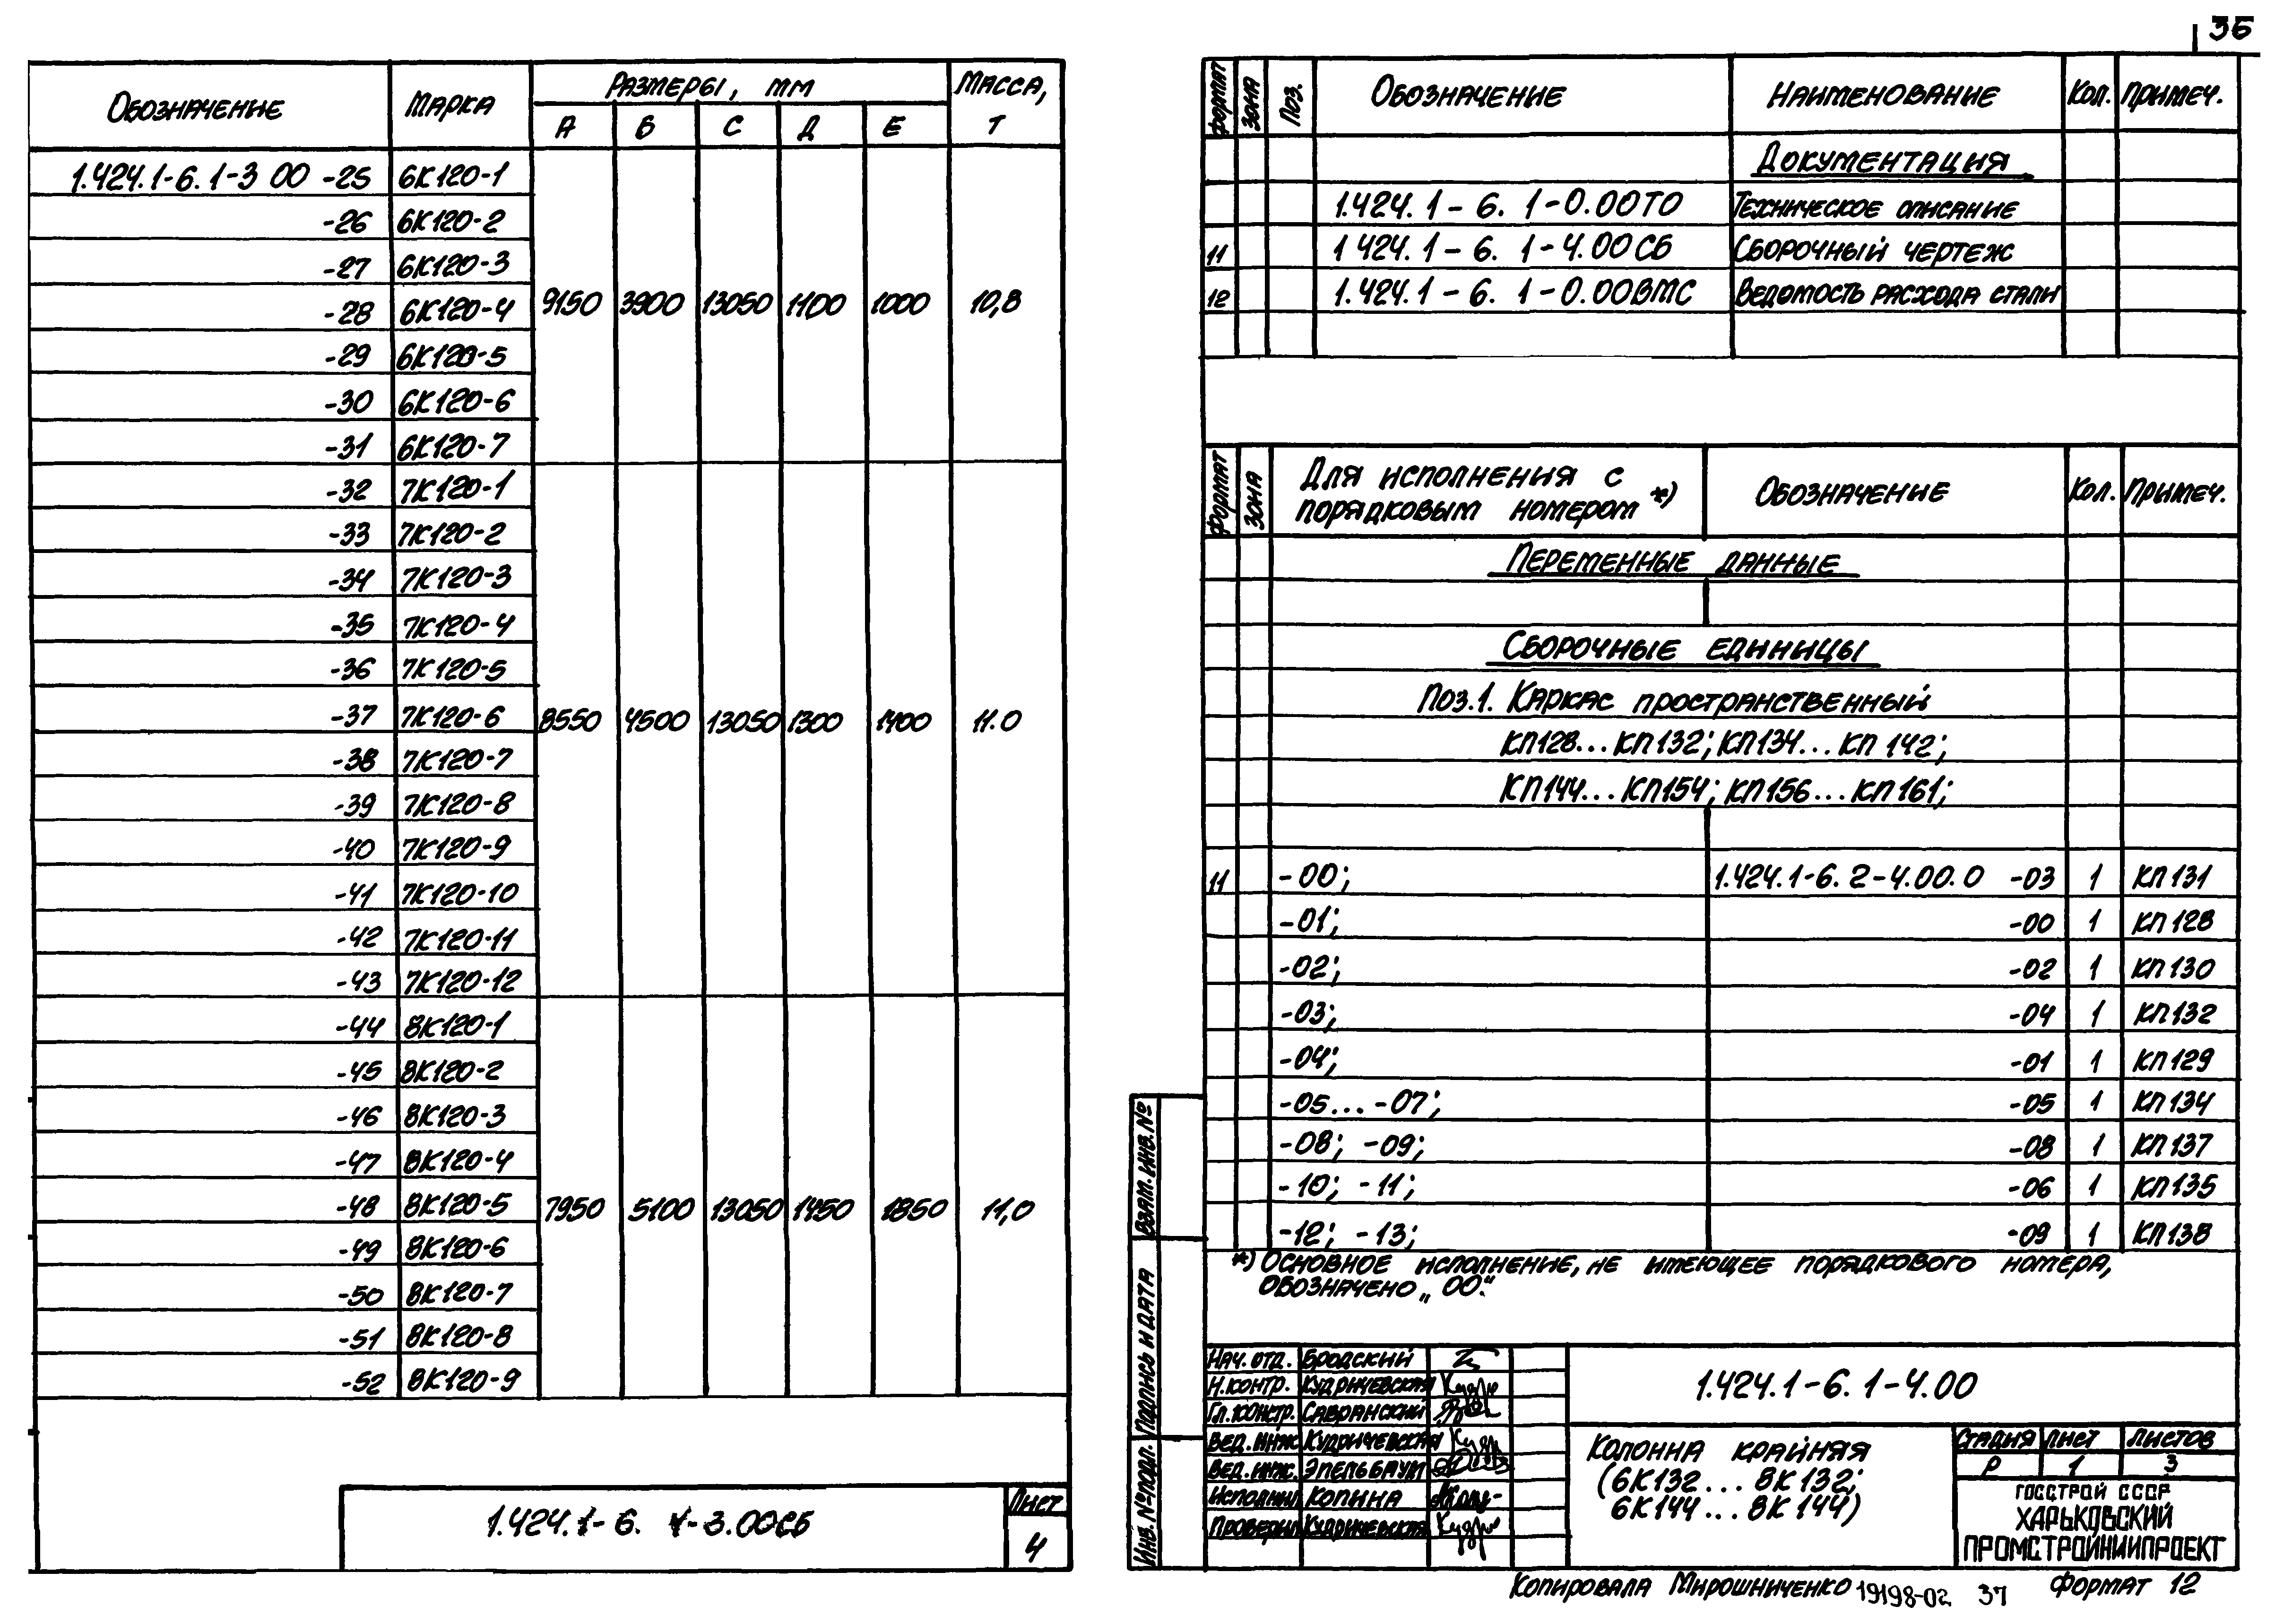 36
Обозначение Марка Размеры, мм Масса, т
А В С Д Е
1.424.1-6. 1-3 00 -25 6К120-1
-26 6К120-2
-27 6К120-3
-28 6К120-4 9150 3900 13050 1100 1000 10,8
-29 6К120-5
-30 6К120-6
-31 6К120-7
-32 7К120-1
-33 7К120-2
-34 7К120-3
-35 7К120-4
-36 7К120-5
-37 7К120-6 8550 4500 13050 1300 1400 11.0
-38 7К120-7
-39 7К120-8
-40 7К120-9
-41 7К120-10
-42 7К120-11
-43 7К120-12
-44 8К120-1
-45 8К120-2
-46 8К120-3
-47 8К120-4
-48 8К120-5 7950 5100 13050 1450 1850 11,0
-49 8К120-6
-50 8К120-7
-51 8К120-8
-52 8К120-9
1.424.1-6. 1-3.00СБ
Лист
4
Формат Зона Поз. Обозначение Наименование Кол. Примеч.
Документация
1.424.1-6. 1-0.00ТО Техническое описание
11 1 424.1-6. 1-4.00СБ Сборочный чертеж
12 1.424.1-6. 1-0.00ВМС Ведомость расхода стали
Формат Зона Для исполнения с порядковым номером *) Обозначение Кол. Примеч.
Переменные данные
Сборочные единицы
Поз.1. Каркас пространственный
КП128...КП132; КП134...КП142;
КП144...КП154; КП156...КП161;
11 -00; 1.424.1-6. 2-4.00.0 -03 1 КП131
-01; -00 1 КП128
-02; -02 1 КП130
-03; -04 1 КП132
-04; -01 1 КП129
-05...-07; -05 1 КП134
-08; -09; -08 1 КП137
-10; -11; -06 1 КП135
-12; -13; -09 1 КП138
*) Основное исполнение, не имеющее порядкового номера,
обозначено „00“.
Взам. инв. №
Подпись и дата
Инв. № подл.
Нач. отд. Бродский
Н. контр. Кудричевская
Гл. констр. Савранский
Вед. инж. Кудричевская
Вед. инж. Эпельбаум
Исполнил Копина
Проверил Кудричевская
1.424.1-6. 1-4.00
Колонна крайняя
(6К132...8К132;
6К144...8К144)
Стадия Лист Листов
Р 1 3
Госстрой СССР
Харьковский
ПромстройНИИпроект
Копировала Мирошниченко 19198-02 37 Формат 12